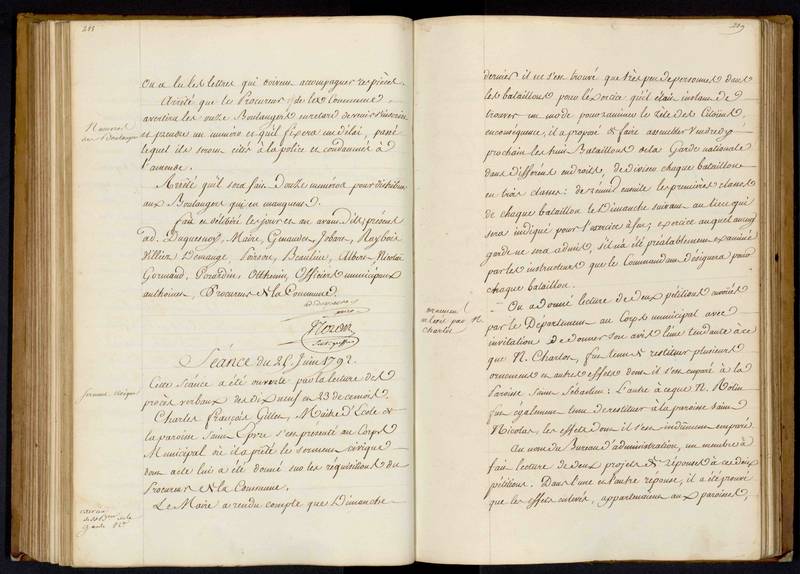 218
On a lu les lettres qui doivent accompagner ces pièces.
Arrêté que le Procureur de la Commune,
avertira les onze Boulangers en retard de venir s'inscrire
et prendre un numéro et qu'il fixera un délai, passé
lequel ils seront cités à la police et condamnés à
l'amende.
Numéros
des Boulangers
Arrêté qu'il sera fait douze numéros pour distribuer
aux Boulangers qui en manquent.
fait en délibéré les jour et an avant dits, présens
ad. Duquesnoy, Maire, Genaudet, Jobart, Raybois
Villier Demange, Poirson, Beaulieu, Albert, Nicolas
Gormand, Perardin, Otthenin, Officiers municipaux
anthoine, Procureur de la Commune.
ad. Duquesnoy
maire
Noron
Séance du 25 Juin 1792.
Cette Séance a été ouverte par la lecture des
procès verbaux des dix neuf et 23 de ce mois.
serment civique
Charles François Gilles, Maître d'Ecole de
la paroisse Saint Epvre s'est présenté au Corps
Municipal où il a prêté le serment civique
dont acte lui a été donné sur les réquisitions du
Procureur de la Commune.
Le Maire a rendu compte que Dimanche
garde Nle
219
dernier il ne s'en trouvé que très peu de personnes dans
les bataillons pour l'exercice qu'il était instant de
trouver un mode pour ranimer le zèle des Citoiens,
en conséquence, il a proposé de faire assembler Vendredy
prochain les huit Bataillons de la Garde nationale
dans différens endroits, de diviser chaque bataillon
en trois classes: de réunir ensuite les premières classes
de chaque bataillon le Dimanche suivant au lieu qui
sera indiqué pour l'exercice à feu; exercice auquel aucun
garde ne sera admis, s'il n'a été préalablement examiné
par les instructeurs que le Commandant désignera pour
chaque bataillon.
On a donné lecture de deux pétitions envoiées
par le Département au Corps municipal avec
invitation de donner son avis l'une tendante à ce
que N. Charlot, fut tenu de restituer plusieurs
ornemens et autres effets dont il s'est emparé à la
Paroisse Saint Sébastien: L'autre à ce que N. Molin
fut également tenu de restituer à la paroisse Saint
Nicolas, les effets dont il s'est indûment emparé
ornemens
enlevé par N.
Charlot
Au nom du Bureau d'administration, un membre a
fait lecture de deux projets de réponse à ces deux
pétitions. Dans l'une et l'autre réponse, il a été prouvé
que les effets enlevés, appartenaient aux paroisses,